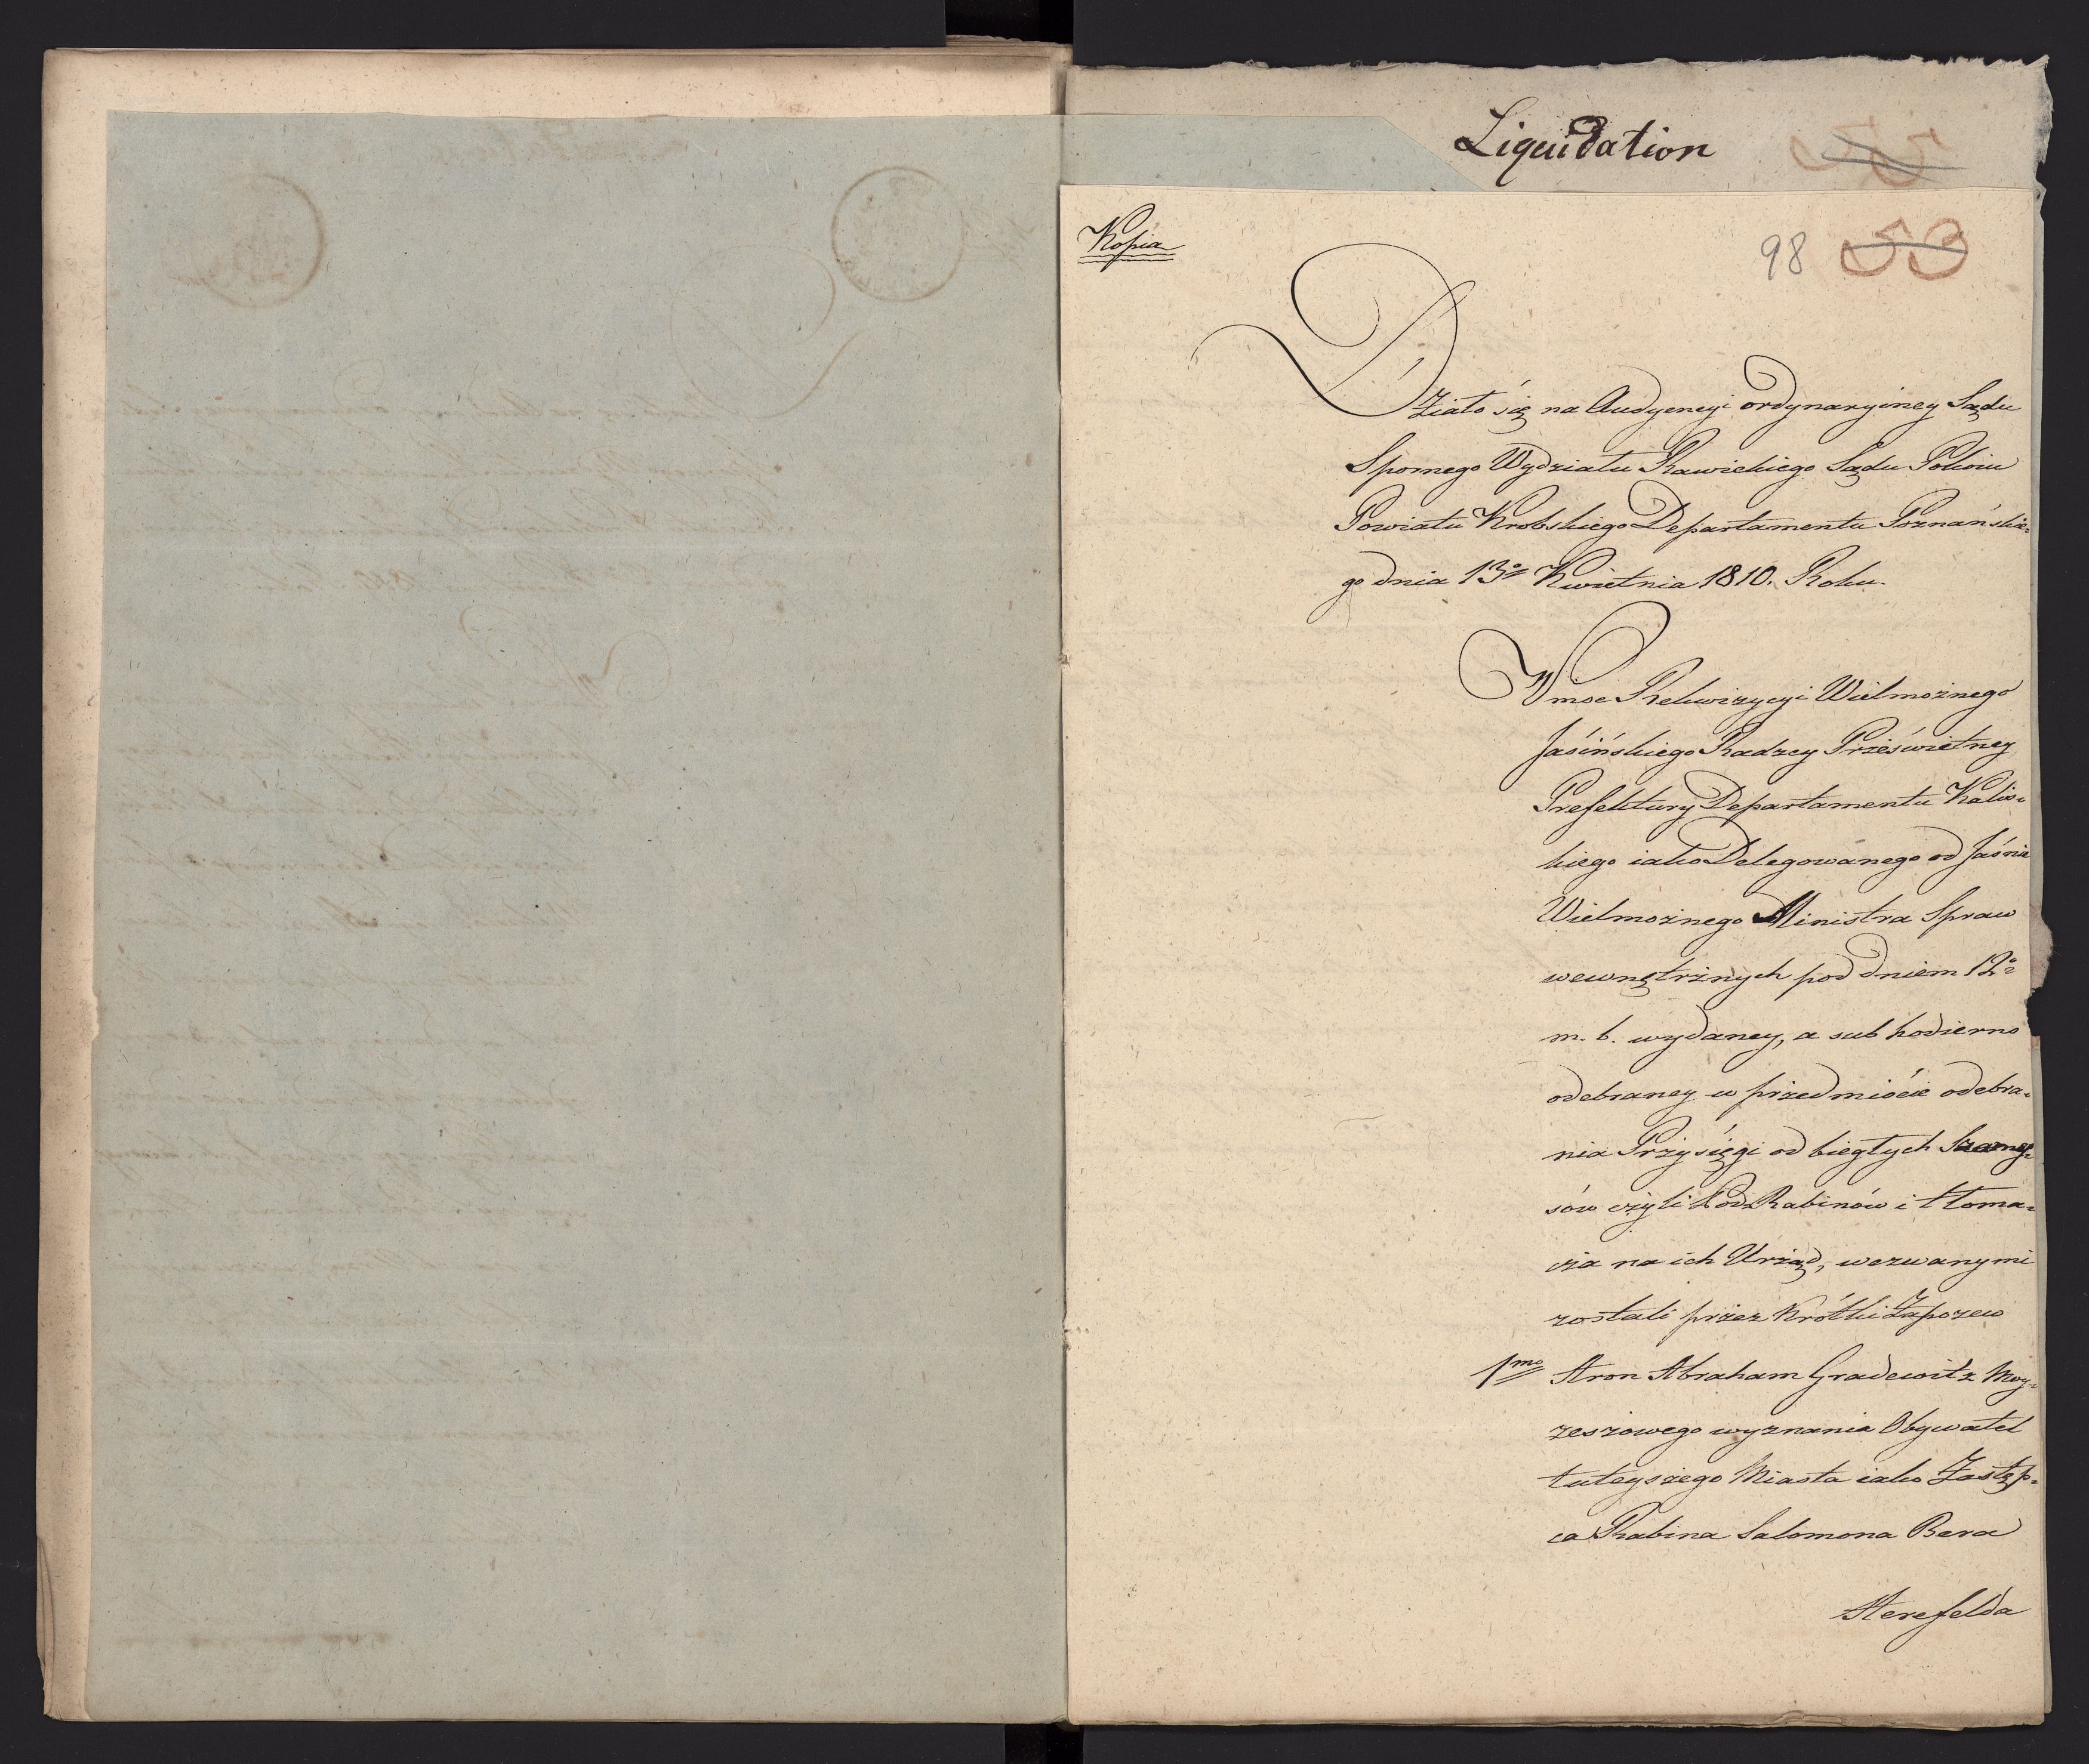 Liquidation
Kopia
98 53
Działo się na Audyencyi ordynaryiney Sądu
Spornego Wydziału Rawickiego Sądu Pokoiu
Powiatu Krobskiego Departamentu Poznańskie=
go dnia 13o Kwietnia 1810. Roku.
W moc Rekwizycyi Wielmożnego
Jasińskiego Radzcy Prześwietney
Prefektury Departamentu Kalis=
kiego iako Delegowanego od Jaśnie
Wielmożnego Ministra Spraw
wewnętrznych pod dniem 12o
m. b. wydaney, a sub hodierno
odebraney w przedmiocie odebra=
nia Przysięgi od biegłych Szame=
sów czyli PodRabinów i tłoma=
cza na ich Urząd, wezwanymi
zostali przez Krótki Zapozew
1mo Aron Abraham Gradewitz Moy=
żeszowego wyznania Obywatel
tuteyszego Miasta iako Zastęp=
ca Rabina Salomona Bera
Herefelda